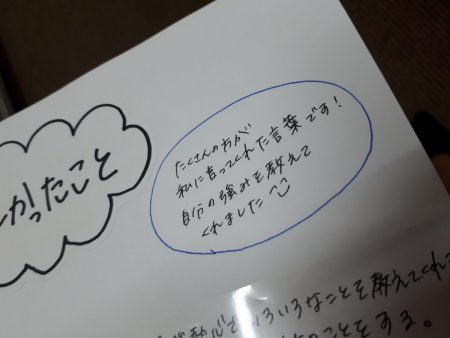 かったこと
たくさんの方が
私に言ってくれた言葉です!
自分の強みを教えて
くれました
熱心でいろいろなことを教えてくれて
のことをする。